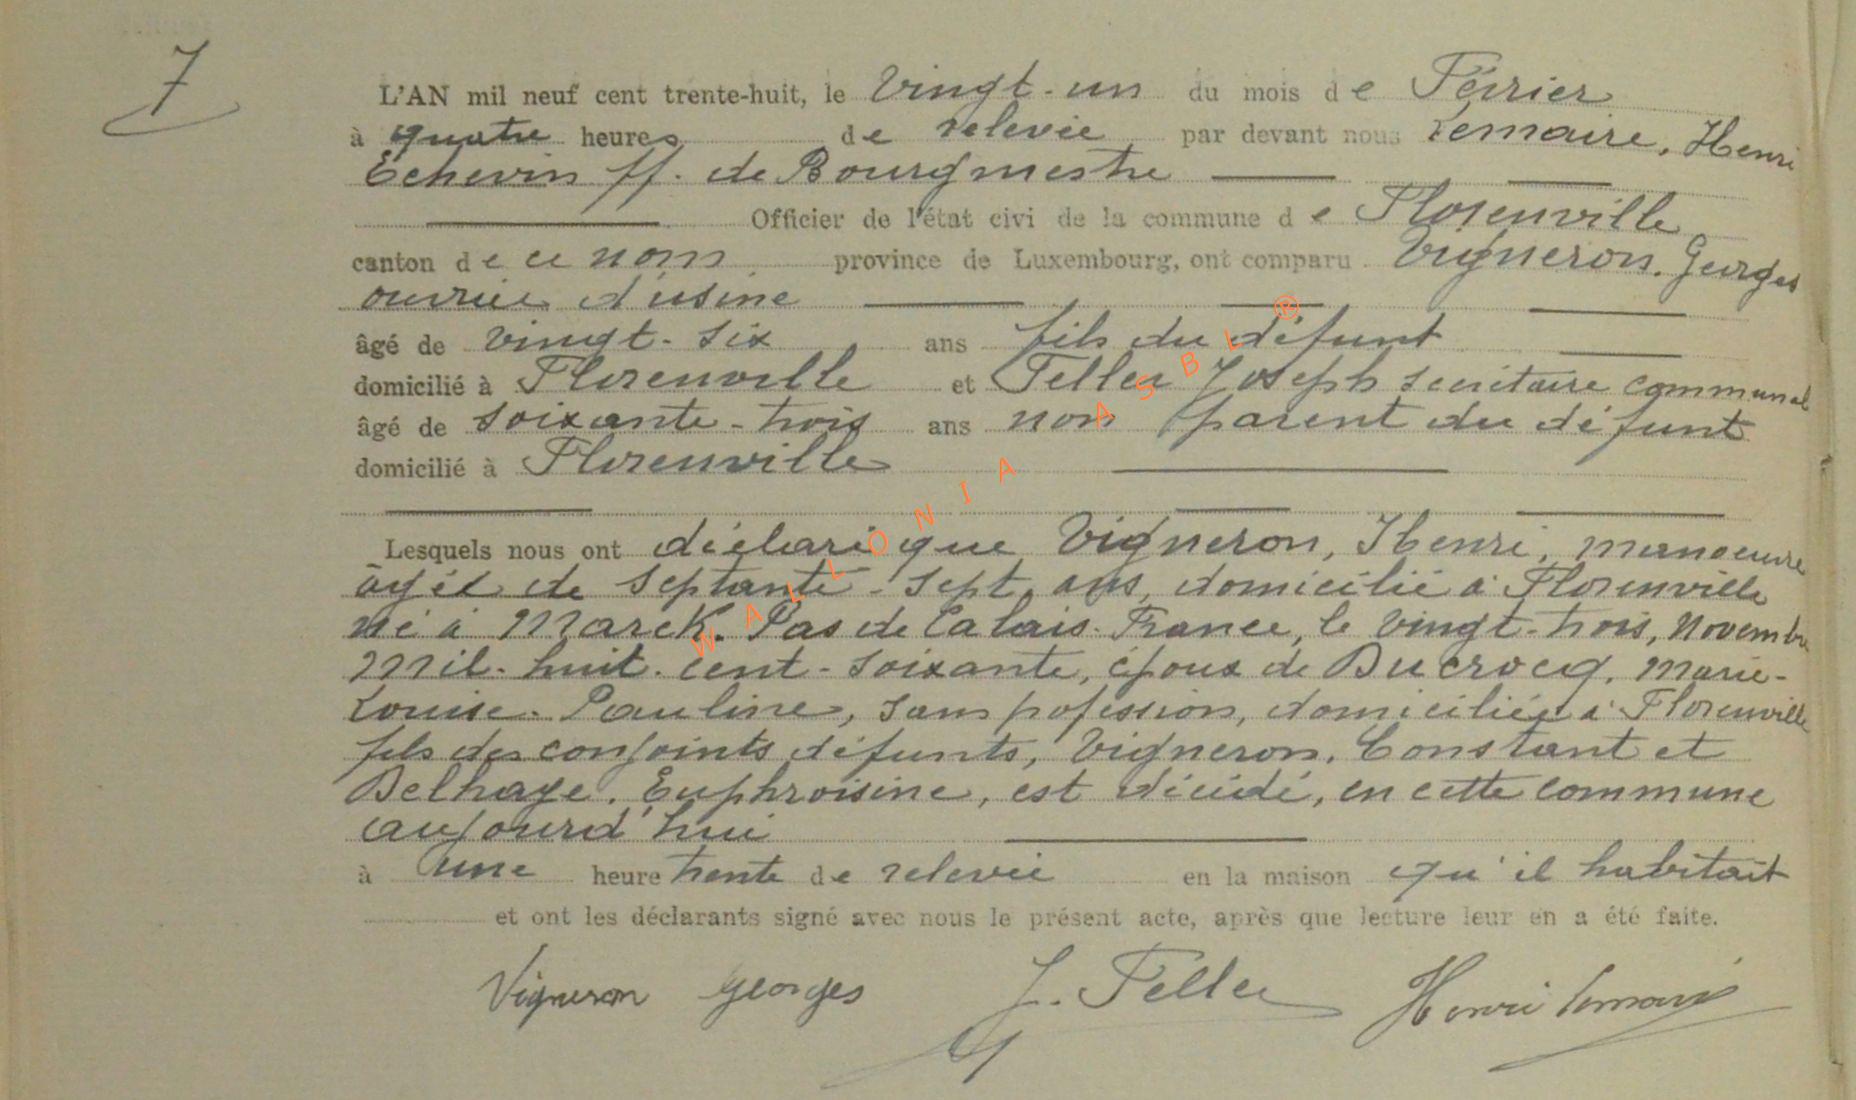 7
L'AN mil neuf cent trente-huit, le Vingt-un du mois de Février
à quatre heures de relevée par devant nous Lemaire, Henri
Echevin ff. de Bourgmestre
Officier de l'état civi de la commune de Florenville
canton de ce nom, province de Luxembourg, ont comparu Vigneron, Georges
ouvrier d'usine
âgé de vingt-six ans fils du défunt
domicilié à Florenville et Feller Joseph secrétaire communal
âgé de soixante-trois ans non parent du défunt
domicilié à Florenville
Lesquels nous ont déclaré que Vigneron, Henri, manoeuvre
âgé de septante-sept ans, domicilié à Florenville
né à Marck. Pas de Calais. France, le vingt-trois, Novembre
mil-huit-cent-soixante, époux de Ducrocq, Marie-
Louise-Pauline, sans profession, domiciliée à Florenville
fils des conjoints défunts, Vigneron, Constant et
Delhaye, Euphroisine, est décédé, en cette commune
aujourd'hui
à une heure trente de relevée en la maison qu'il habitait
et ont les déclarants signé avec nous le présent acte, après que lecture leur en a été faite.
Vigneron Georges J. Feller Henri Lemaire
WALLONIA ASBL ®